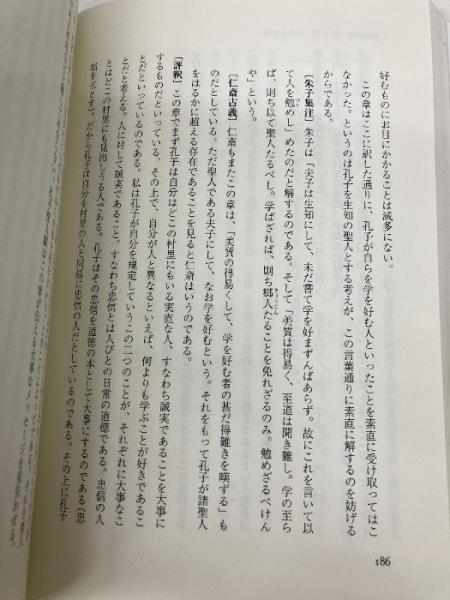 好むものにお目にかかることは滅多にない。
この章はここに訳した通りに、孔子が自らを学を好む人といったことを素直に受け取ってはこ
なかった。というのは孔子を生知の聖人とする考えが、この言葉通りに素直に解するのを妨げる
からである。
［朱子集注］朱子は「夫子は生知にして、未だ嘗て学を好まずんばあらず。故にこれを言いて以
て人を勉めし」めたのだと解するのである。そして「美質は得易く、至道は聞き難し。学の至ら
ば、則ち以て聖人たるべし。学ばざれば、則ち郷人たることを免れざるのみ。勉めざるべけん
や」という。
［仁斎古義］仁斎もまたこの章は、「美質の得易くして、学を好む者の甚だ得難きを嘆ずる」も
のだとしている。ただ聖人である夫子にして、なお学を好むという。それをもって孔子が諸聖人
をはるかに超える存在であることを見ると仁斎はいうのである。
［評釈］この章でまず孔子は自分はどこの村里にもいる実直な人、すなわち誠実であることを大事に
するものだといっている。その上で、自分が人と異なるといえば、何よりも学ぶことが好きであるこ
とだといっているのである。私は孔子が自分を規定していうこの二つのことが、それぞれに大事なこ
とだと考える。人に対して誠実であること、すなわち忠信とは人びとの日常の道徳である。忠信の人
とはどこの村里にも見出しうる人である。孔子はその忠信を道徳の本として大事にするのである（忠
信を主とす）。だから孔子は自分を村里の人と同様に忠信の人だとしているのである。その上に孔子
186